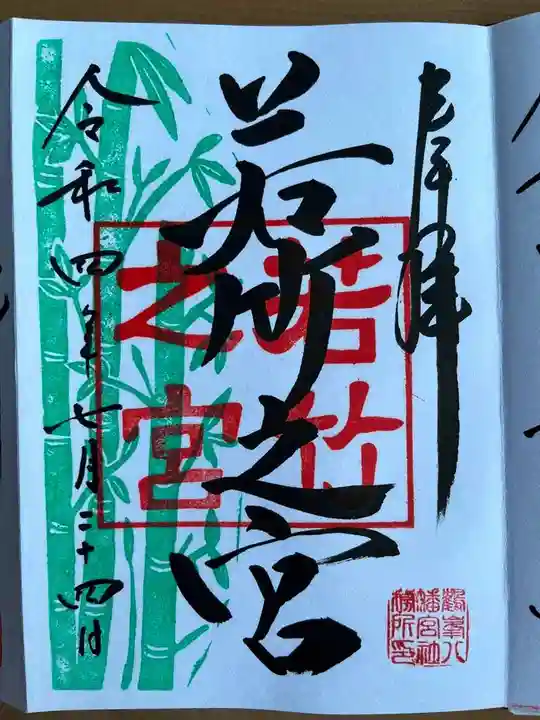 奉拝
若竹之宮
若竹
之宮
令和四年七月二十四日
鶴峯八
幡宮社
務所印